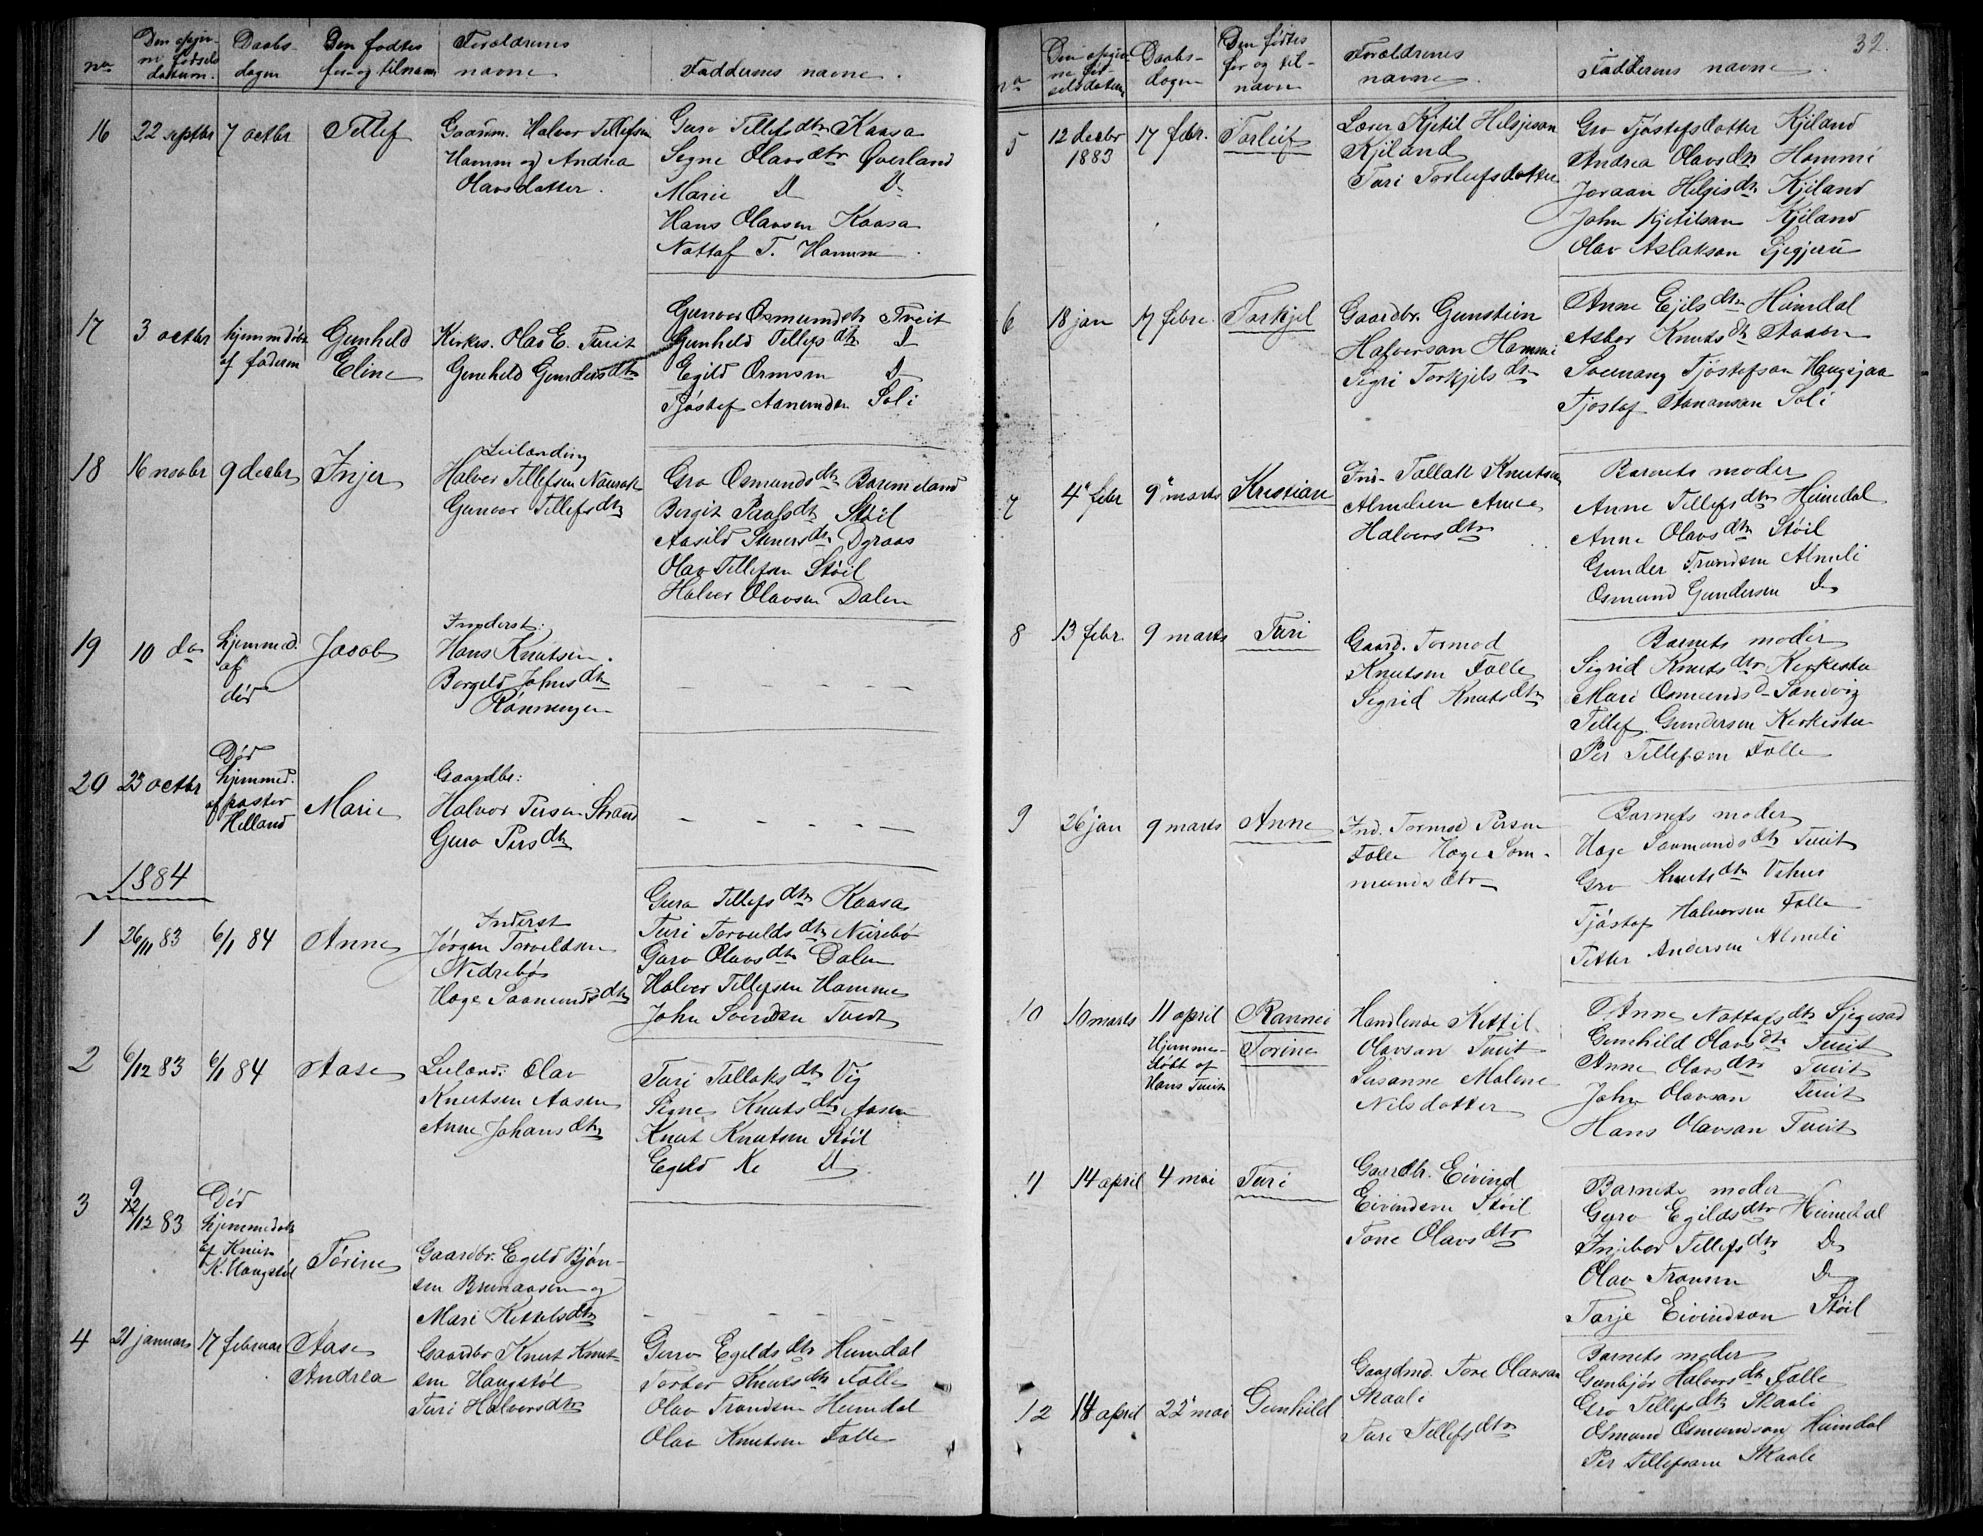 No
Den opgiv-
ne fødsels
datum.
Daabs-
dagen
Den fødtes
for- og tilnavn
Forældrenes
navne
Faddernes navne.
16
22 septbr
7 octbr
Tellef
Gaarm. Halvor Tellefsen
Hamm og Andrea
Olavsdatter.
Guro Tellefsdtr Kaasa
Signe Olavsdtr Øverland
Marie D D
Hans Olavsen Kaasa
Nottof T. Hamm
17
3 octbr
hjemmedøbt
af faderen
Gunhild
Eline
Kirkes. Olav E. Tveit
Gunhild Gundersdtr
Gunvor Osmundsdtr Tveit
Gunhild Tellefsdtr D
Egild Ormsen D
Tjøstof Aanundsen Soli
18
16 novbr
9 decbr
Injer
Leilænding
Halvor Tellefsen
Gunvor Tellefsdtr
Gro Osmundsdtr
Bergit Paalsdtr Støil
Aasild Steinersdtr
Olav Tellefsen Støil
Halvor Olavsen Dalen
19
10 do
hjemmed.
af
død
Jacob
Inderst:
Hans Knutsen.
Borgild Johnsdtr
Rønningen
20
23 octbr
Død
hjemmed.
af pastor
Helland
Marie
Gaardbr:
Halvor Persen Strand
Guro Persdtr
1884
1
26/11 83
6/1 84
Anne
Inderst
Jørgen Torvildsen
Nedrebø
Hæge Saamundsdtr
Guro Tellefsdtr Kaasa
Turi Torvildsdtr Nirebø
Guro Olavsdtr Dalen
Halvor Tellefsen Hamme
John Tveit
2
6/12 83
6/1 84
Aase
Leilænd. Olav
Knutsen Aasen
Anne Johansdtr
Turi Tallaksdtr Vig
Signe Knutsdtr Aasen
Knut Knutsen Støil
Egild K. D
3
9
12/12 83
Død
hjemmedøbt
af Knut
K. Haugstøl
Torine
Gaardbr. Egild Bjøn-
sen Brunaasen og
Mari Kittelsdtr
4
21 januar
17 februar
Aase
Andrea
Gaardbr Knut Knut-
sen Haugstøl
Turi Halvorsdtr
Guro Egildsdtr Heimdal
Torbor Knutsdtr Folle
Olav Trondsen Heimdal
Olav Knutsen Folle
32.
No
Den opgiv-
ne fød-
selsdatum
Daabs-
dagen
Den fødtes
for og til-
navn
Forældrenes
navne.
Faddernes navne.
5
12 decbr
1883
17 febr.
Torleif
Lærer Kjetil Helgjeson
Kjiland
Turi Torleifsdotter
Gro Tjøstofsdotter Kjiland
Andrea Olavsdtr Hamme
Joraan Helgisdtr Kjiland
John Kjetilson Kjiland
Olav Aslakson
6
18 jan
17 febr.
Torkjel
Gaardbr. Gunstein
Halvorsan Hammi
Sigri Torkjelsdtr
Anne Ejelsdtr Heimdal
Asbor Knutsdtr
Tjøstofsan Haugsjaa
Tjøstof Aanonsan Soli
7
4 febr
9 marts
Kristian
Ind. Tallak Knutsen
Almelien Anne
Halvorsdtr
Barnets moder
Anne Tellefsdtr Heimdal
Anne Olavsdtr Støil
Gunder Trondsen Almeli
Osmund Gundersen D
8
13 febr.
9 marts
Turi
Gaard. Tormod
Knutsen Folle
Sigrid Knutsdtr
Barnets moder
Sigrid Knutsdtr Kirkestu
Mari Osmundsd Sandvig
Tellef Gundersen Kirkestu
Per Tellefsen Folle
9
26 jan
9 marts
Anne
Ind. Tormod Persen
Folle Hæge Søm-
mundsdtr
Barnets moder
Hæge Saamundsdtr Tveit
Gro Knutsdtr Vehus
Tjøstof Halvorsen Folle
Petter Andersen Almeli
10
10 marts
11 april
Hjemme-
døbt af
Hans Tveit
Rannei
Torine
Handlende Kittil
Olavsan Tveit
Susanne Malene
Nilsdotter
Anne Nottofsdtr
Gunhild Olavsdtr Tveit
Anne Olavsdtr Tveit
John Olavsan Tveit
Hans Olavsan Tveit
11
14 april
4 mai
Turi
Gaardbr. Eivind
Eivindsen Støil
Tone Olavsdtr
Barnets moder
Guro Egildsdtr Heimdal
Injebor Tellefsdtr D
Olav Tronsen D
Tarje Eivindson Støil
12
14 april
22 mai
Gunhild
Gaardmd. Tore Olavsan
Skaali
Turi Tellefsdtr
Barnets moder
Gunbjør Halvorsdtr Folle
Gro Tellefsdtr Skaali
Osmund Osmundson Heimdal
Per Tellefsøn Skaali